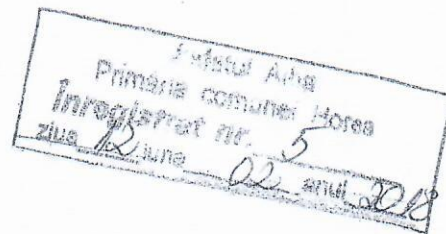 Județul Alba
Primăria comunei Horea
Înregistrat nr. 5
ziua 12 luna 02 anul 2018